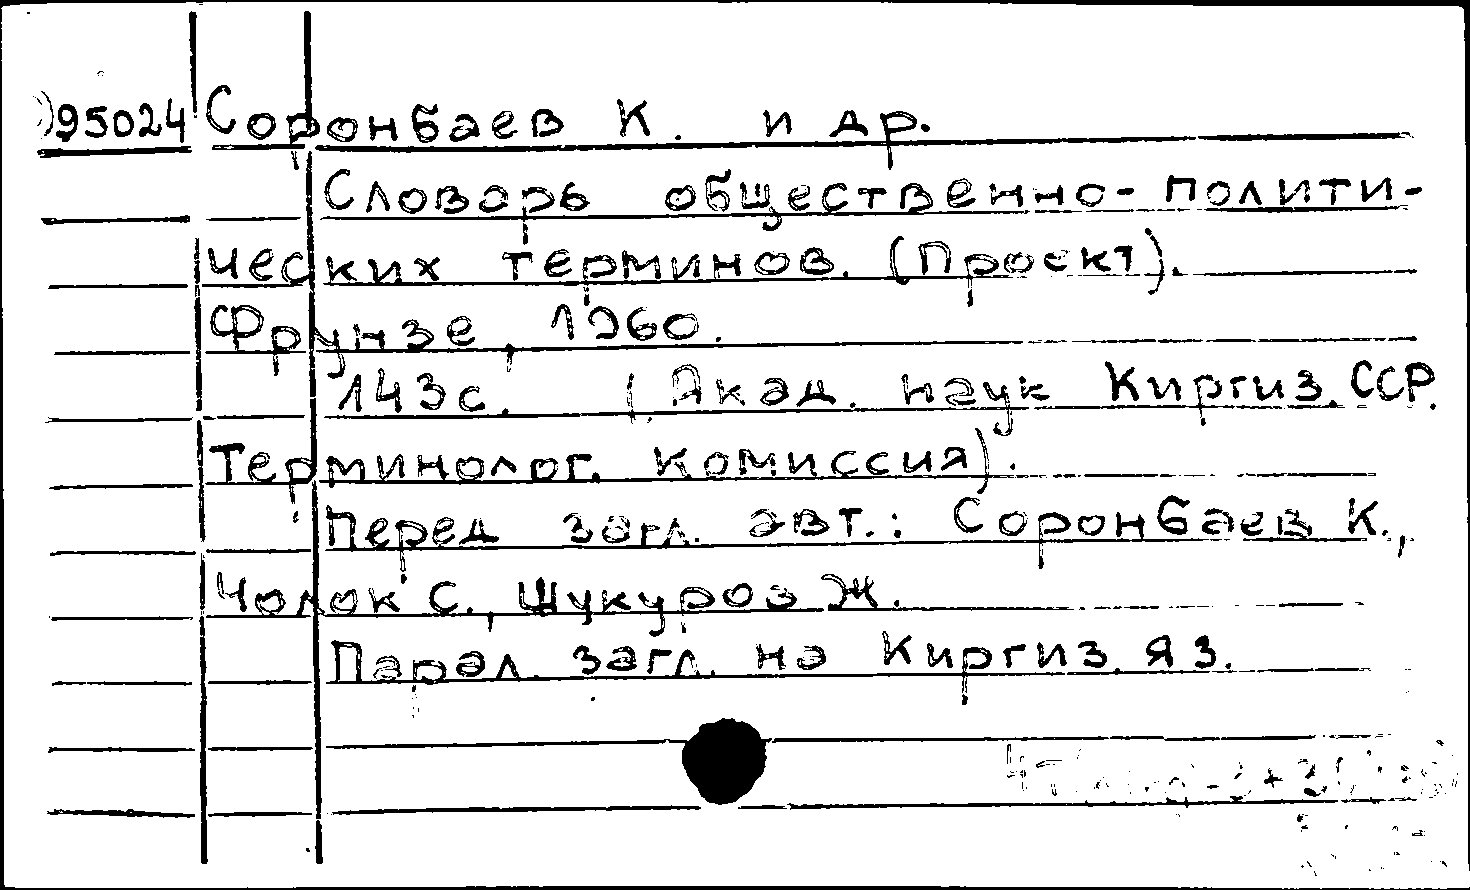 95024 Соронбаев К. и др.
Словарь общественно-полити-
ческих терминов. (Проект).
Фрунзе, 1960.
143с. (Акад. наук Киргиз. ССР.
Терминолог. комиссия).
Перед загл. авт.: Соронбаев К.,
Чолок С., Шукуров Ж.
Парал. загл. на Киргиз. яз.